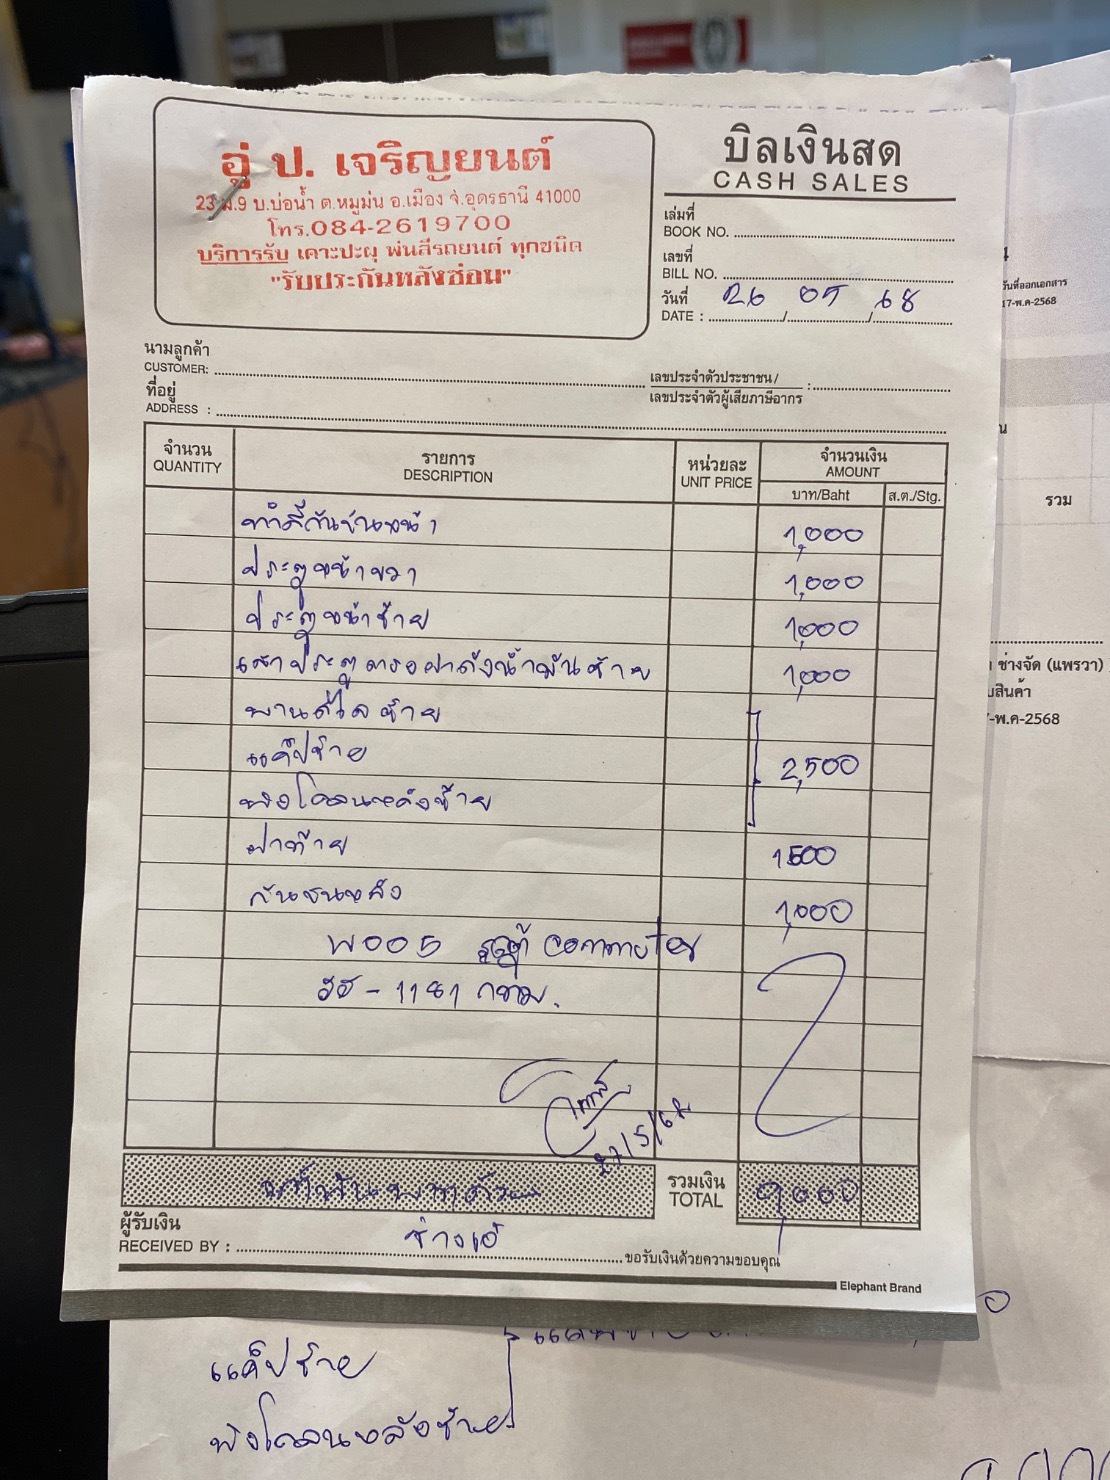 อู่ ป. เจริญยนต์
23 ม.9 บ.บ่อน้ำ ต.หมูม่น อ.เมือง จ.อุดรธานี 41000
โทร.084-2619700
บริการรับ เคาะปะผุ พ่นสีรถยนต์ ทุกชนิด
"รับประกันหลังซ่อม"
บิลเงินสด
CASH SALES
เล่มที่
BOOK NO.
เลขที่
BILL NO.
วันที่ 26 05 68
DATE : / /
นามลูกค้า
CUSTOMER:
ที่อยู่
ADDRESS :
เลขประจำตัวประชาชน/
เลขประจำตัวผู้เสียภาษีอากร :
จำนวน รายการ หน่วยละ จำนวนเงิน
QUANTITY DESCRIPTION UNIT PRICE AMOUNT
บาท/Baht ส.ต./Stg.
ทำสีกันชนหน้า 1,000
ประตูหน้าขวา 1,000
ประตูหน้าซ้าย 1,000
เสาประตูตรงฝาถังน้ำมันซ้าย 1,000
ซ้าย
แค็ปซ้าย 2,500
บังโคลนหลังซ้าย
ฝาท้าย 1500
กันชนหลัง 1,000
รถตู้
ฮฮ-1181 กทม.
27/5/68
เก้าพันบาทถ้วน
รวมเงิน
TOTAL 9,000
ผู้รับเงิน
RECEIVED BY : ช่างเอ๋ ขอรับเงินด้วยความขอบคุณ
Elephant Brand
วันที่ออกเอกสาร
17-พ.ค-2568
รวม
ช่างจัด (แพรวา)
-พ.ค-2568
แค็ปซ้าย
บังโคลนหลังซ้าย